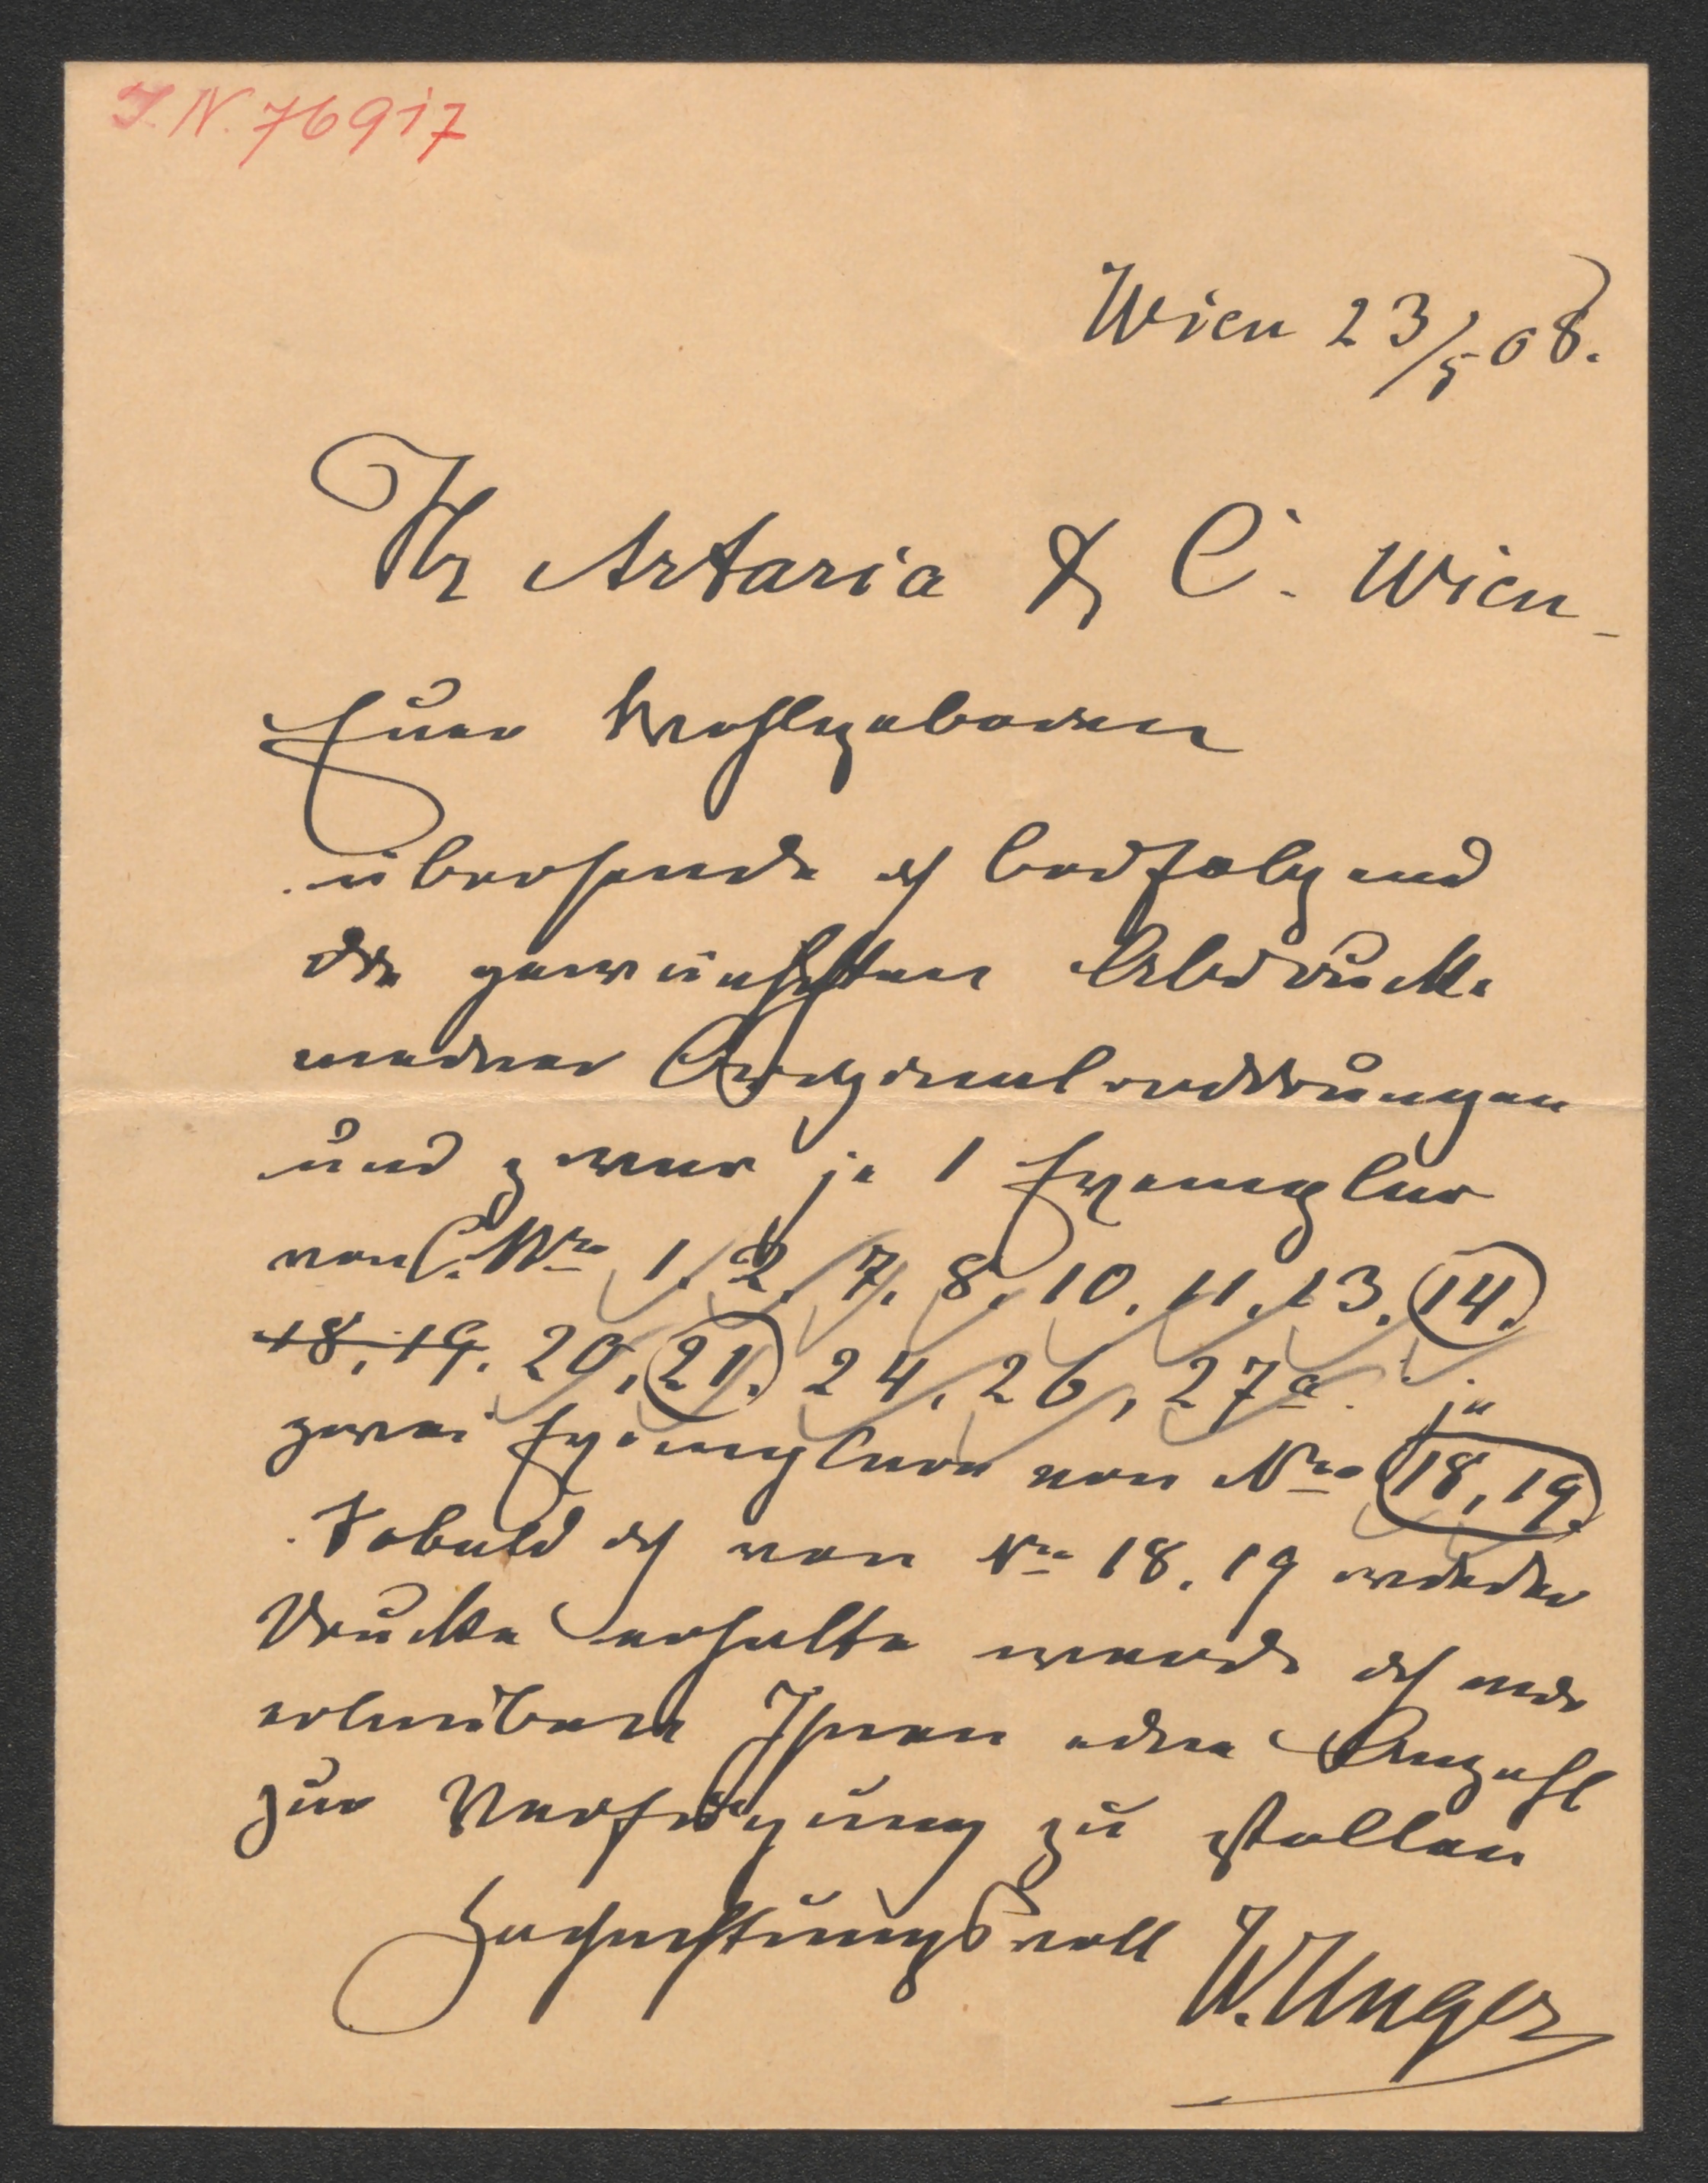 I.N. 76917
Wien 23/5 08.
Hr Artaria & C. Wien
Euer Wohlgeboren
übersende ich beifolgend
die gewünschten Abdrücke
meiner Originalradirungen
und zwar je 1 Exemplar
von C. Nro 1. 2. 7. 8. 10. 11. 13. 14.
18. 19. 20, 21. 24, 26, 27a. je
zwei Exemplare von Nro 18, 19.
Sobald ich von Nro 18. 19 wieder
Drucke erhalte werde ich mir
erlauben Ihnen eine Anzahl
zur Verfügung zu stellen
Hochachtungsvoll
W. Unger